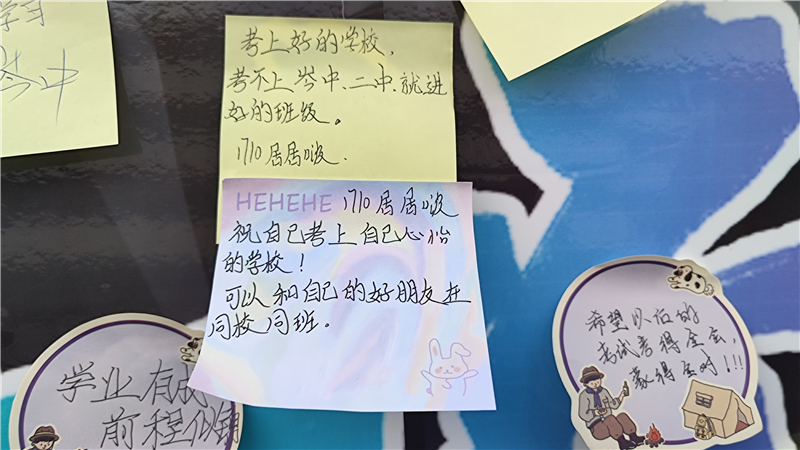 学习
岑中
考上好的学校,
考不上岑中、二中、就进
好的班级。
1710居居啵.
HEHEHE 1710居居啵
祝自己考上自己心怡
的学校!
可以和自己的好朋友在
同校同班。
学业有成
前程似锦
希望以后的
考试考得全会,
蒙得全对!!!